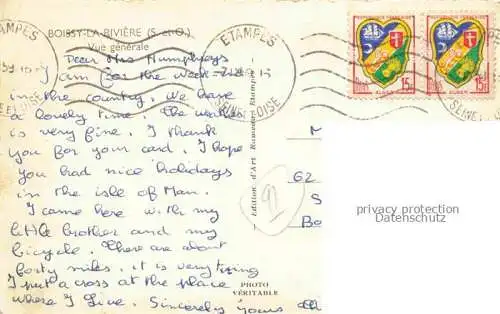 BOISSY-LA-RIVIÈRE (S.-et-O.)
Vue générale
ETAMPES
SEINE ET OISE
ETAMPES
SEINE ET OISE
15F
ALGER
15F
ALGER
Dear Mrs Humphreys
I am for the week-end
in the country. We have
a lovely time. The weather
is very fine. I thank
you for your card. I hope
you had nice holidays
in the isle of Man.
I came here with my
little brother and my
bicycle. There are about
forty miles. it is very tiring
I put a cross at the place
where I live. Sincerely yours
Edition d'Art Rameau Etampes
91
62
S
PHOTO
VÉRITABLE
privacy protection
Datenschutz